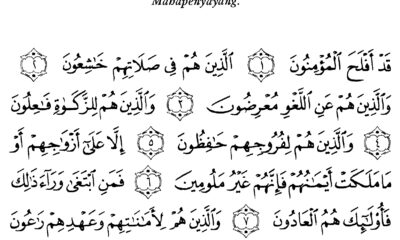 Mahapenyayang.
قَدْ أَفْلَحَ الْمُؤْمِنُونَ ﴿١﴾ الَّذِينَ هُمْ فِي صَلَاتِهِمْ خَٰشِعُونَ ﴿٢﴾
وَالَّذِينَ هُمْ عَنِ اللَّغْوِ مُعْرِضُونَ ﴿٣﴾ وَالَّذِينَ هُمْ لِلزَّكَوٰةِ فَٰعِلُونَ
﴿٤﴾ وَالَّذِينَ هُمْ لِفُرُوجِهِمْ حَٰفِظُونَ ﴿٥﴾ إِلَّا عَلَىٰٓ أَزْوَٰجِهِمْ أَوْ
مَا مَلَكَتْ أَيْمَٰنُهُمْ فَإِنَّهُمْ غَيْرُ مَلُومِينَ ﴿٦﴾ فَمَنِ ابْتَغَىٰ وَرَآءَ ذَٰلِكَ
فَأُو۟لَٰٓئِكَ هُمُ الْعَادُونَ ﴿٧﴾ وَالَّذِينَ هُمْ لِأَمَٰنَٰتِهِمْ وَعَهْدِهِمْ رَٰعُونَ